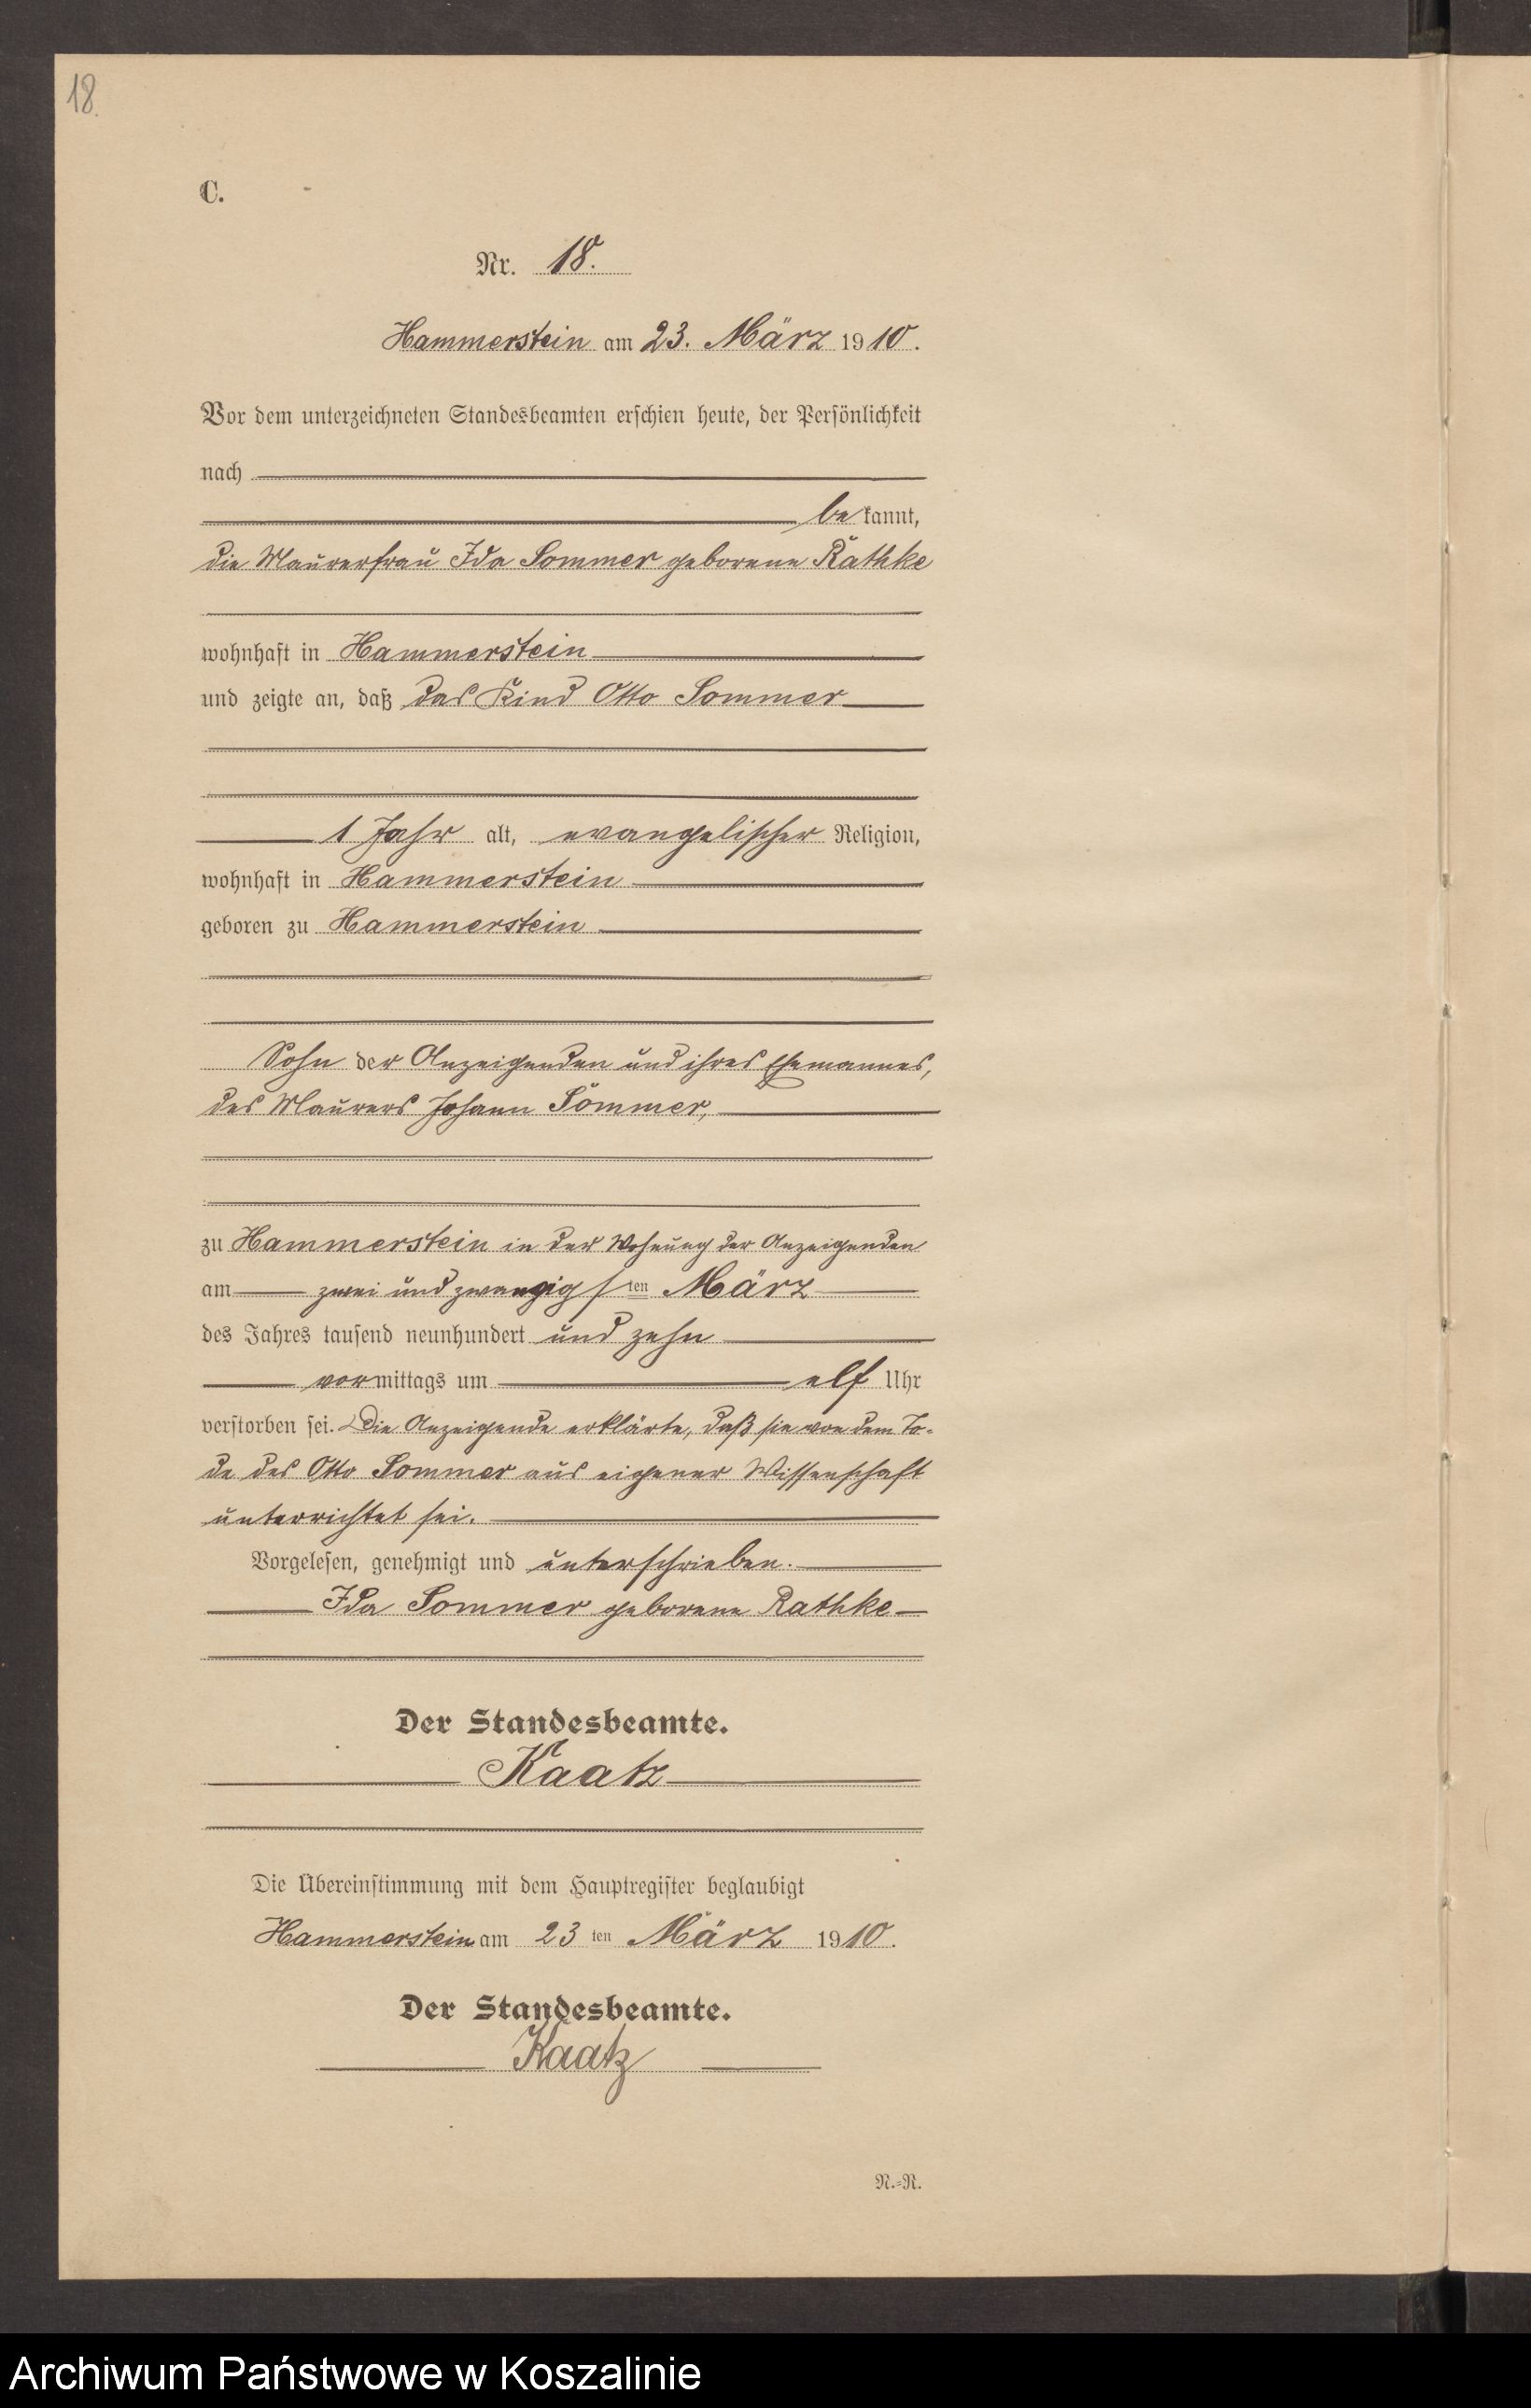 18.
C.
Nr. 18.
Hammerstein am 23. März 1910.
Vor dem unterzeichneten Standesbeamten erschien heute, der Persönlichkeit
nach
bekannt,
die Maurerfrau Ida Sommer geborene Rathke
wohnhaft in Hammerstein
und zeigte an, daß das Kind Otto Sommer
1 Jahr alt, evangelischer Religion,
wohnhaft in Hammerstein
geboren zu Hammerstein
Sohn der Anzeigenden und ihres Ehemannes,
des Maurers Johann Sommer,
zu Hammerstein in der Wohnung der Anzeigenden
am zwei und zwanzigsten März
des Jahres tausend neunhundert und zehn
vormittags um elf Uhr
verstorben sei. Die Anzeigende erklärte, daß sie von dem To-
de des Otto Sommer aus eigener Wissenschaft
unterrichtet sei.
Vorgelesen, genehmigt und unterschrieben.
Ida Sommer geborene Rathke
Der Standesbeamte.
Kaatz
Die Übereinstimmung mit dem Hauptregister beglaubigt
Hammerstein am 23 ten März 1910.
Der Standesbeamte.
Kaatz
N.=R.
Archiwum Państwowe w Koszalinie